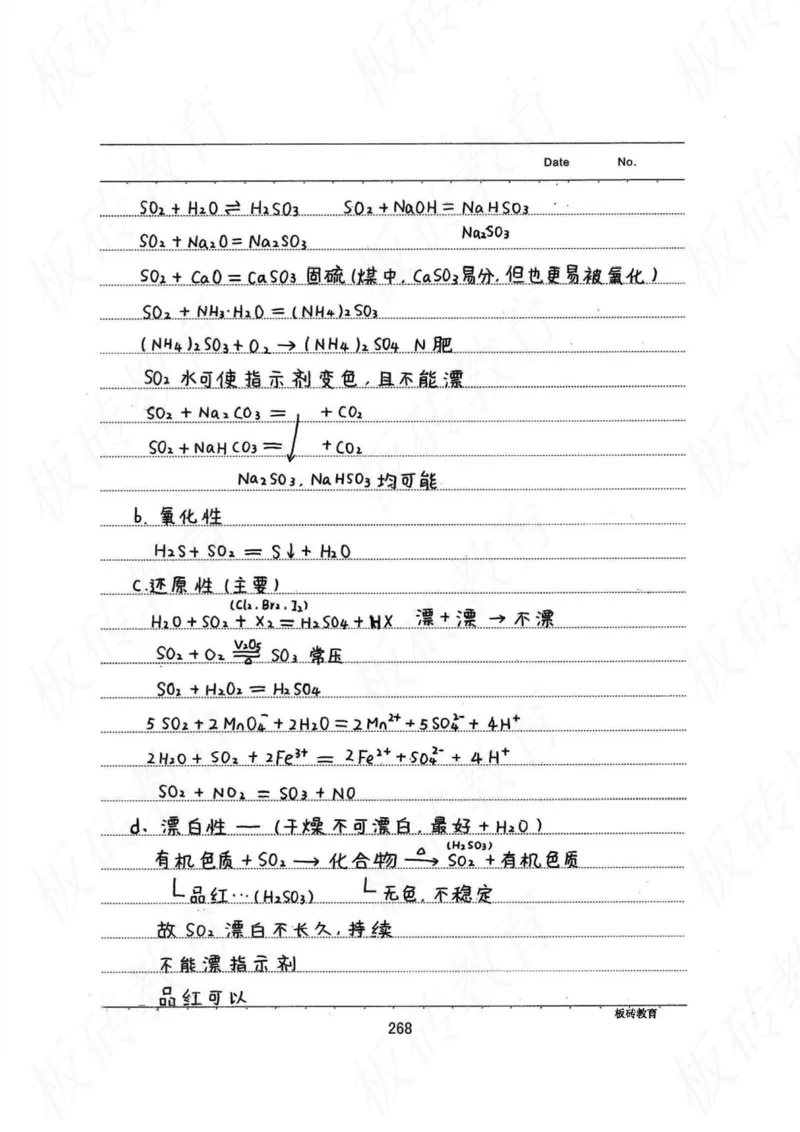 Date No.
SO₂ + H₂O ⇌ H₂SO₃ SO₂ + NaOH = NaHSO₃
Na₂SO₃
SO₂ + Na₂O = Na₂SO₃
SO₂ + CaO = CaSO₃ 固硫 (煤中, CaSO₃易分, 但也更易被氧化)
SO₂ + NH₃·H₂O = (NH₄)₂SO₃
(NH₄)₂SO₃ + O₂ → (NH₄)₂SO₄ N 肥
SO₂ 水可使指示剂变色, 且不能漂
SO₂ + Na₂CO₃ = + CO₂
SO₂ + NaHCO₃ = + CO₂
Na₂SO₃, NaHSO₃ 均可能
b. 氧化性
H₂S + SO₂ = S↓ + H₂O
C.还原性 (主要)
(Cl₂, Br₂, I₂)
H₂O + SO₂ + X₂ = H₂SO₄ + HX 漂+漂 → 不漂
V₂O₅
SO₂ + O₂ ⇌ SO₃ 常压
△
SO₂ + H₂O₂ = H₂SO₄
5 SO₂ + 2 MnO₄⁻ + 2H₂O = 2Mn²⁺ + 5SO₄²⁻ + 4H⁺
2H₂O + SO₂ + 2Fe³⁺ = 2Fe²⁺ + SO₄²⁻ + 4H⁺
SO₂ + NO₂ = SO₃ + NO
d、漂白性 — (干燥不可漂白, 最好 + H₂O)
△ (H₂SO₃)
有机色质 + SO₂ → 化合物 → SO₂ + 有机色质
└品红…(H₂SO₃) └无色, 不稳定
故 SO₂ 漂白不长久, 持续
不能漂指示剂
品红可以
板砖教育
268